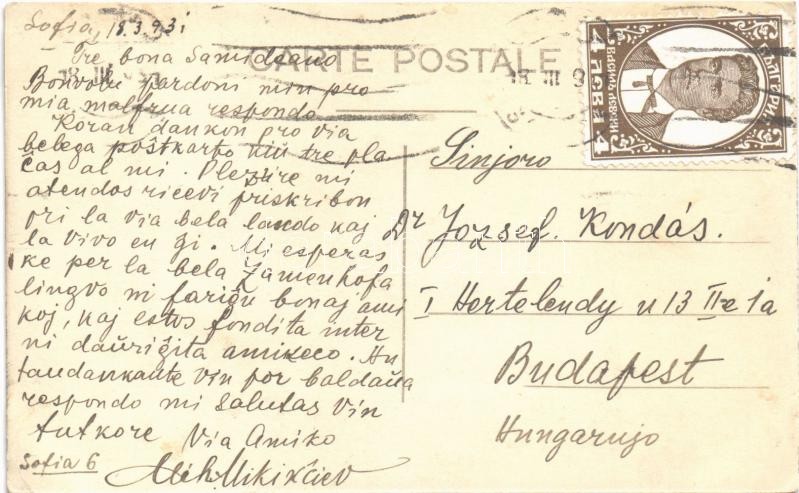 Sofia, 18.3.931
Tre bona Samideano
CARTE POSTALE
Bonvolu pardoni min pro
mia malfrua respondo.
Koran dankon pro via
belega poŝtkarto kiu tre pla
ĉas al mi. Plezure mi
atendos ricevi priskribon
pri la via bela lando kaj
la vivo en ĝi. Mi esperas
ke per la bela Zamenhofa
lingvo ni fariĝu bonaj ami
koj, kaj estos fondita inter
ni daŭriĝita amikeco. An
taudankante vin por baldaŭa
respondo mi salutas vin
tutkore Via Amiko
Sofia 6
БЪЛГАРИЯ
4 ЛЕВА 4
18 III
Sinjoro
Dr Jozsef. Kondás.
I Hertelendy u 13 II-e 1a
Budapest
Hungarujo